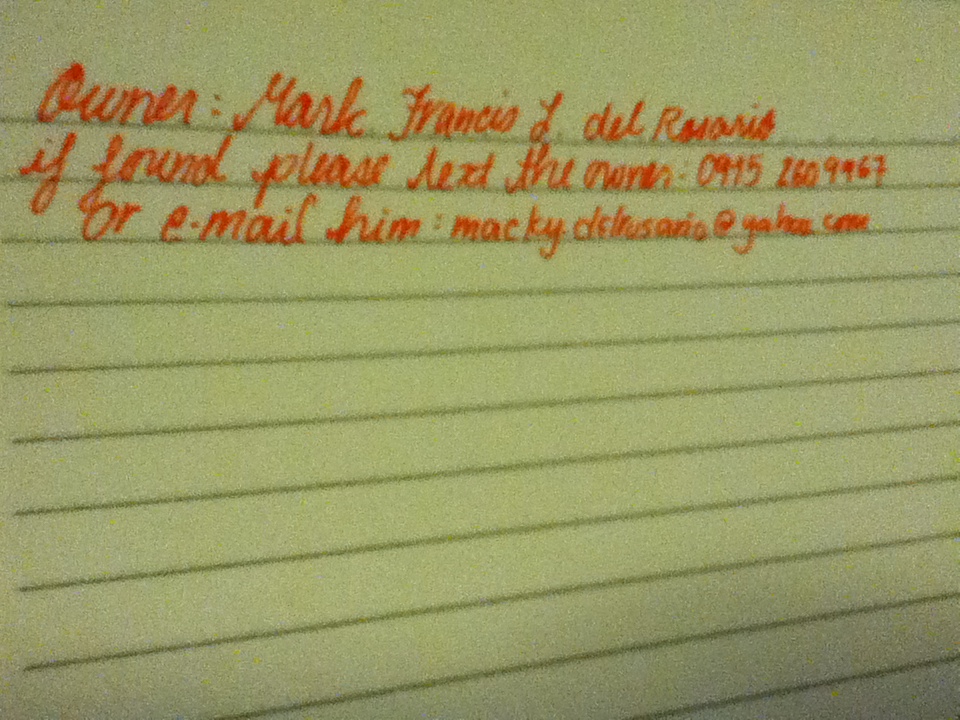 Owner: Mark Francis J. del Rosario
if found please text the owner: 0915 2609967
Or e-mail him: macky.delrosario@yahoo.com